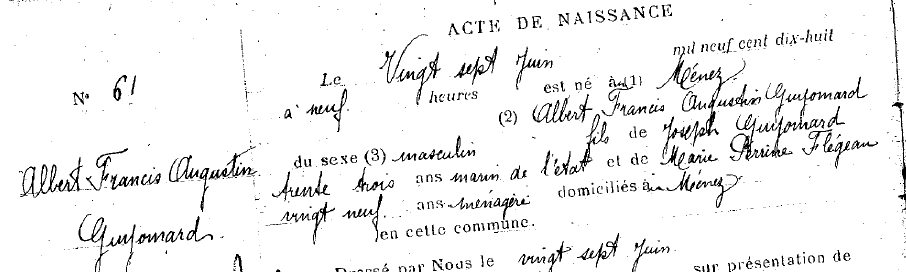 ACTE DE NAISSANCE
N° 61
Albert Francis Augustin
Guyomard
Le Vingt sept Juin mil neuf cent dix-huit
à neuf heures est né au (1) Ménez
(2) Albert Francis Augustin Guyomard
du sexe (3) masculin fils de Joseph Guyomard
trente trois ans marin de l'état et de Marie Perrine Flégeau
vingt neuf ans ménagère domiciliés au Ménez
en cette commune.
Dressé par Nous le vingt sept Juin sur présentation de